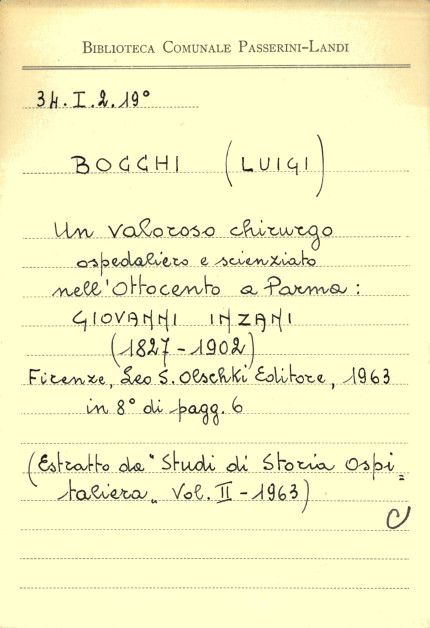 BIBLIOTECA COMUNALE PASSERINI-LANDI
34.I.2.19°
BOCCHI (LUIGI)
Un valoroso chirurgo
ospedaliero e scienziato
nell'Ottocento a Parma:
GIOVANNI INZANI
(1827-1902)
Firenze, Leo S. Olschki Editore, 1963
in 8° di pagg. 6
(Estratto da "Studi di Storia Ospi=
taliera" Vol. II - 1963)
C/